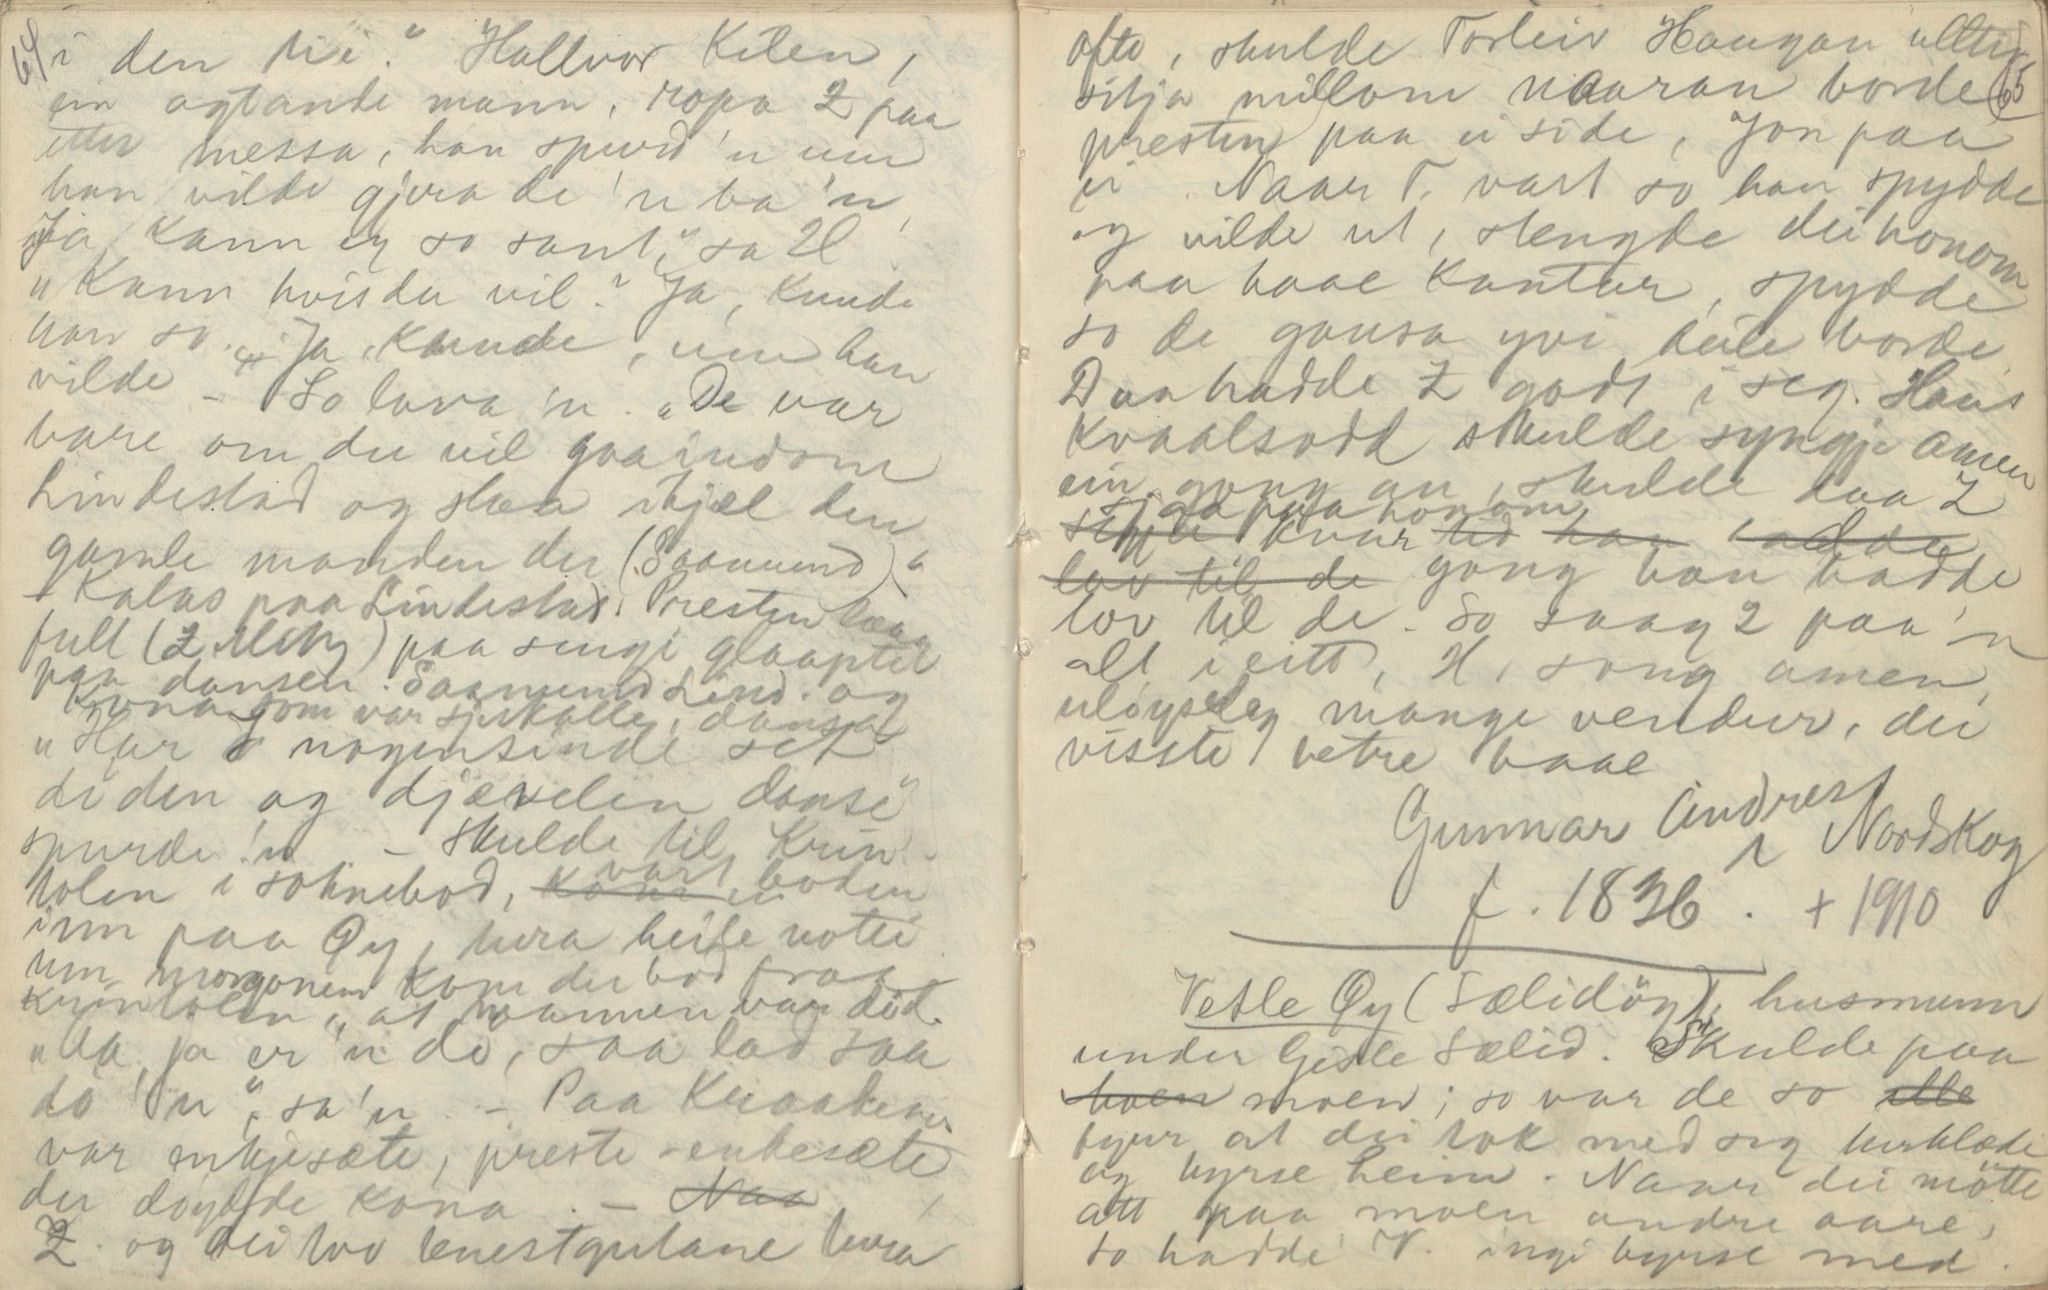 64
i den tii." Hallvor Kilen,
ein agtande mann, ropa Z paa
etter messa, han spurd 'n um
han vilde gjera de 'n ba 'n,
"Ja, kann eg so sant," sa Z
"Kann hvis du vil." Ja, kunde
han so. "Ja, kunde, um han
vilde - So lova 'n. "De var
bare om du vil gaa indom
Lindestad og slaa ihjæl den
gamle manden der (Saamund)"
- Kalas paa Lindestad. Presten laag
full (Z Metz) paa sengi glaapte
paa dansen. Saamund Lind. og
Kona, som var sjuskalle, dansa
"Har I nogensinde set
döden og djævelen danse"
spurde 'n - Skulde til Krin-
tolen i soknebod, kom vart boden
inn paa Øy, tura heile notti
um morgonen kom der bod fraa
Krintolen, at mannen var död.
"Aa, ja er 'n dö, saa lad saa
dö 'n", sa 'n. - Paa Kraakenes
var enkjesæte, preste-enkesæte
der döydde kona. - Naa
Z. og dei two tenestgutane tura
ofte, skulde Torleiv Haugan alltid
65
sitja millom naaran borde
presten paa ei side, Jon paa
ei. Naar T. vart so han spydde
og vilde ut, stengde dei honom
paa baae kantar, spydde
so de gausa yvi heile borde.
Daa hadde Z godt i seg. Hans
Kvaalsodd skulde syngje amen
ein gong au, skulde daa Z
sjaa paa honom
kvar tid han hadde
lov til de gong han hadde
lov til de. So saag Z paa 'n
alt i eitt, H, song amen,
uløyseleg mange vendur, dei
visste betre baae
Gunnar Andresf
i Nordskog
f. 1836. + 1910
Vetle Øy (Sælidöy), husmann
under Gisle Sælid. Skulde paa
moen; so var de so ille
fyur at dei tok med seg turklæde
og byrse heim. Naar dei mötte
att paa moen andre aare,
so hadde V. ingi byrse med.